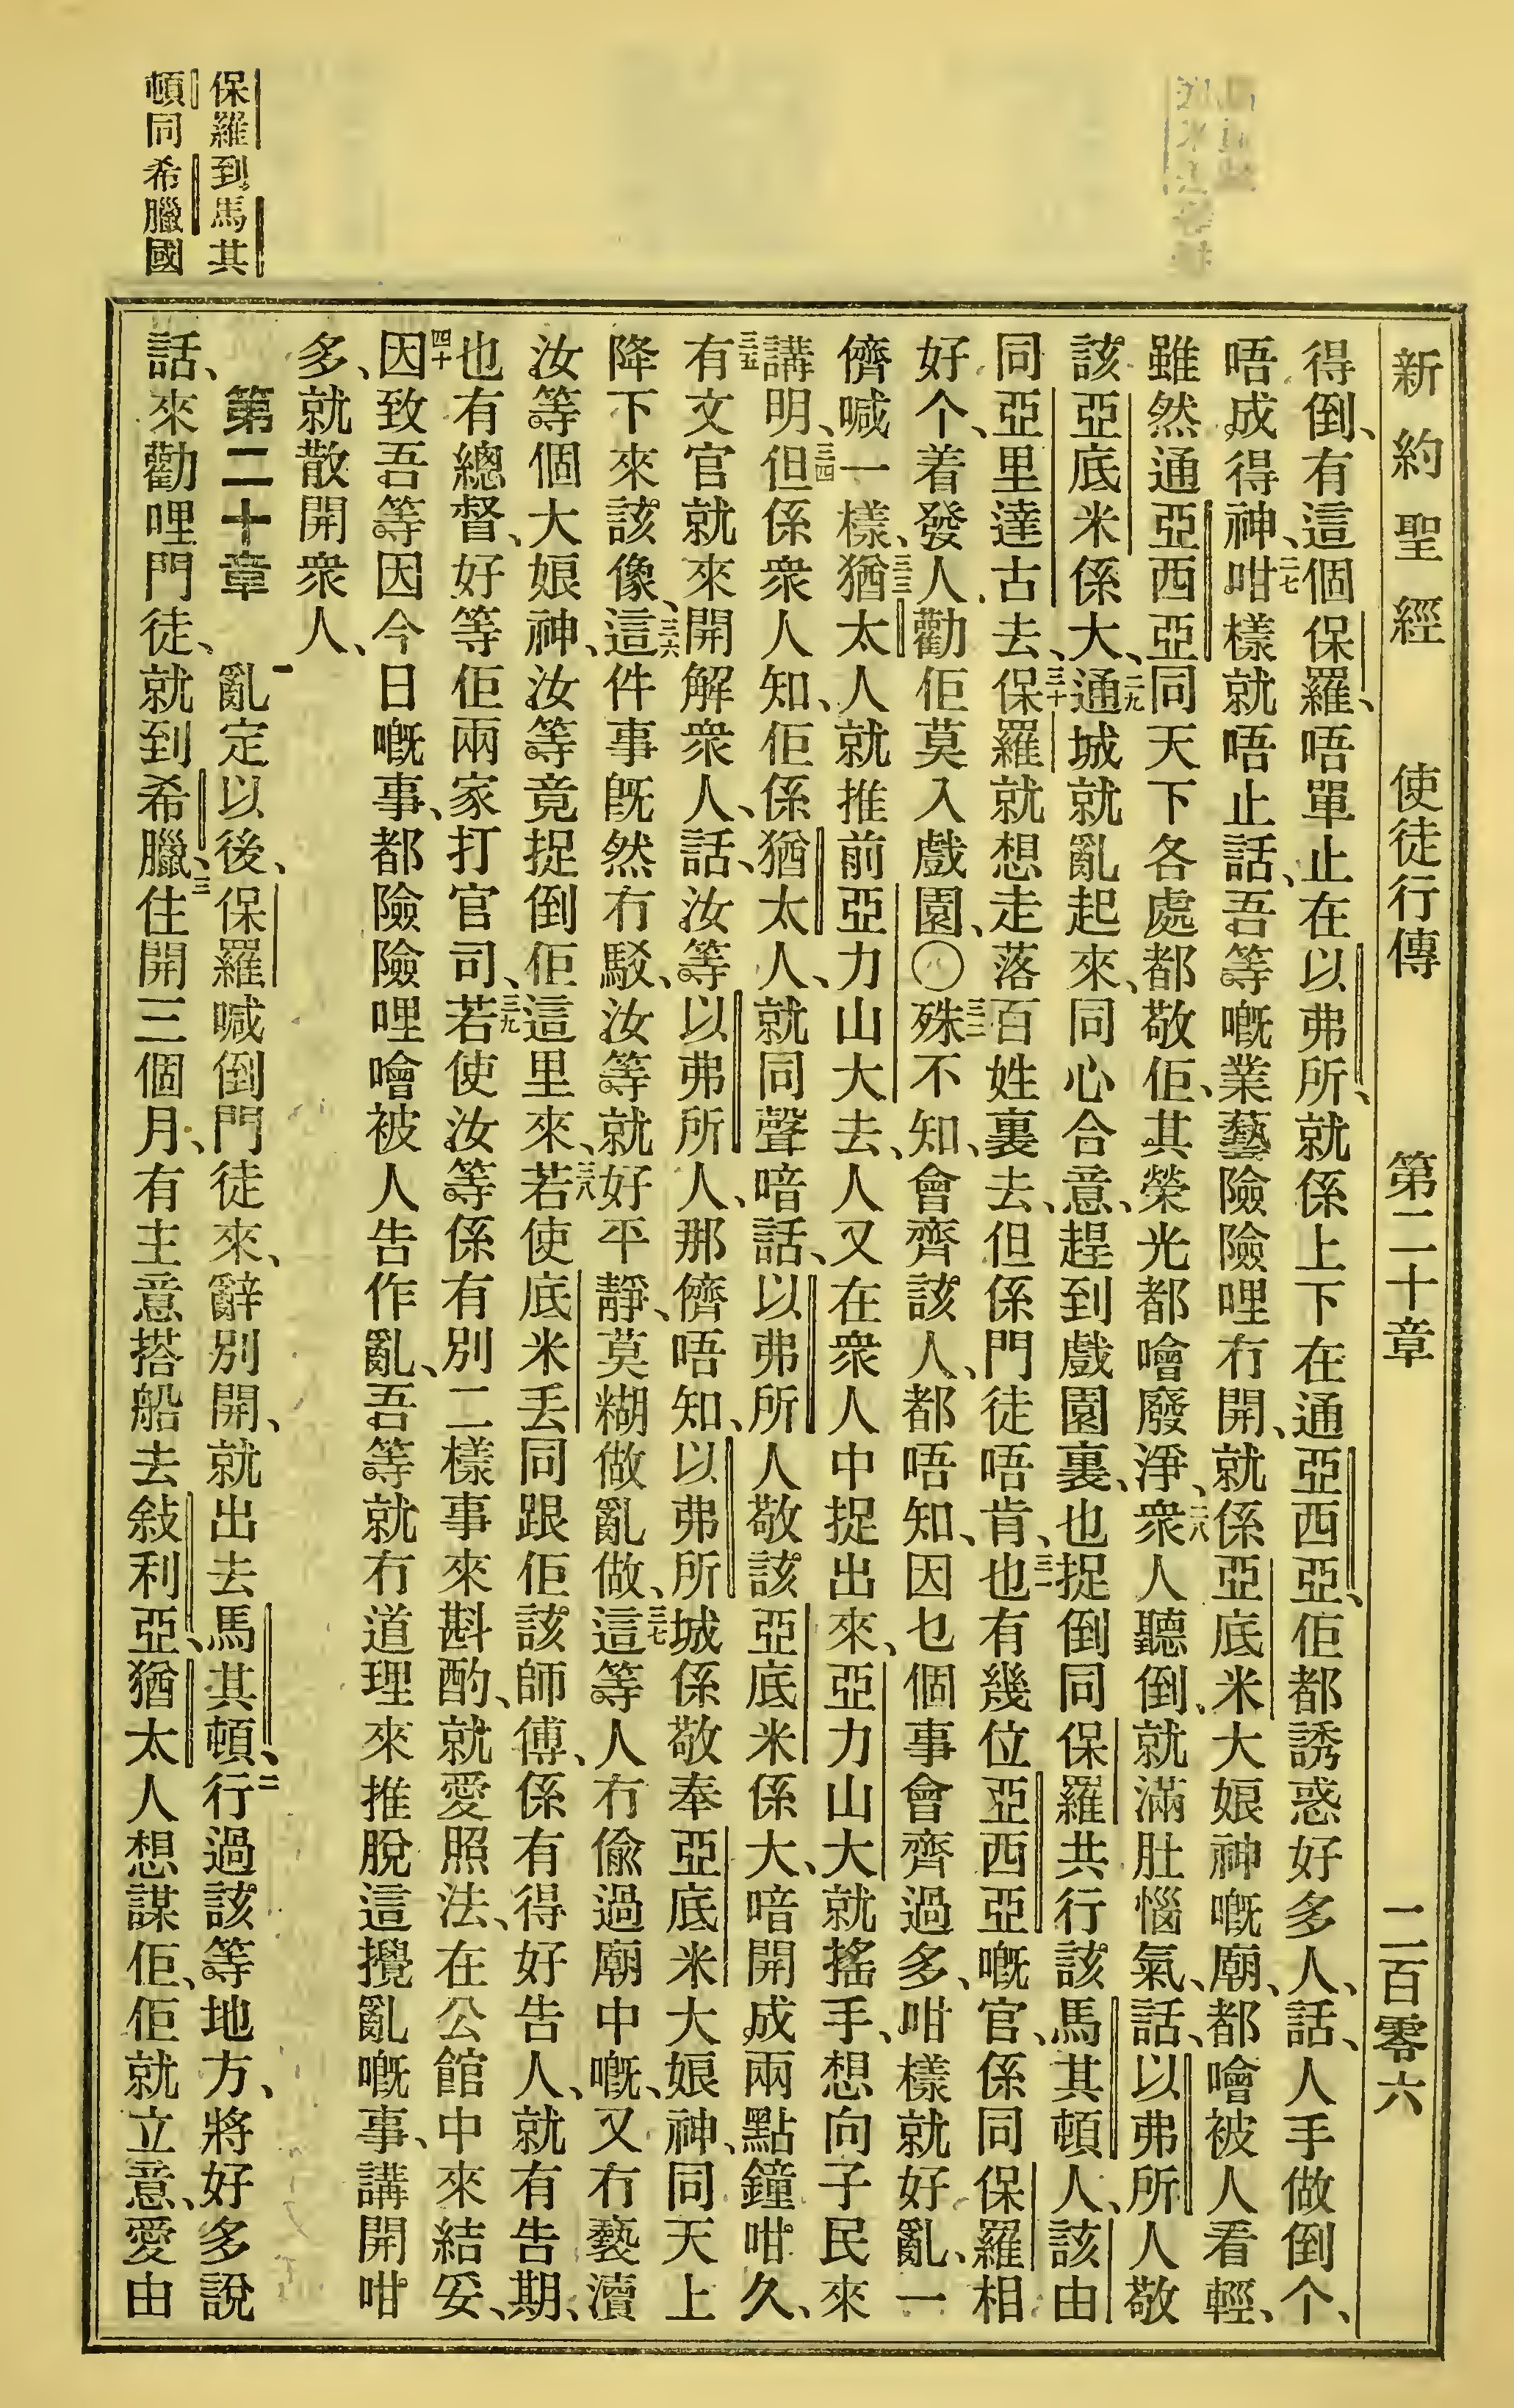 新約聖經 使徒行傳 第二十章 二百零六
得倒、有這個保羅、唔單止在以弗所、就係上下在通亞西亞、佢都誘惑好多人、話、人手做倒个、
唔成得神、二七咁樣就唔止話、吾等嘅業藝險險哩冇開、就係亞底米大娘神嘅廟、都噲被人看輕、
雖然通亞西亞同天下各處都敬佢、其榮光都噲廢淨、二八衆人聽倒、就滿肚惱氣、話、以弗所人敬
該亞底米係大、二九通城就亂起來、同心合意、趕到戲園裏、也捉倒同保羅共行該馬其頓人、該由
同亞里達古去、三十保羅就想走落百姓裏去、但係門徒唔肯、三一也有幾位亞西亞嘅官、係同保羅相
好个、着發人勸佢莫入戲園、〇三二殊不知、會齊該人、都唔知、因乜個事會齊過多、咁樣就好亂、一
儕喊一樣、三三猶太人就推前亞力山大去、人又在衆人中捉出來、亞力山大就搖手、想向子民來
講明、三四但係衆人知、佢係猶太人、就同聲喑話、以弗所人敬該亞底米係大、喑開成兩點鐘咁久、
三五有文官就來開解衆人、話、汝等以弗所人、那儕唔知、以弗所城係敬奉亞底米大娘神、同天上
降下來該像、三六這件事旣然冇駁、汝等就好平靜、莫糊做亂做、三七這等人冇偷過廟中嘅、又冇褻瀆
汝等個大娘神、汝等竟捉倒佢這里來、三八若使底米丟同跟佢該師傅、係有得好告人、就有告期、
也有總督、好等佢兩家打官司、三九若使汝等係有別二樣事來斟酌、就愛照法、在公館中來結妥、
四十因致吾等因今日嘅事、都險險哩噲被人告作亂、吾等就冇道理來推脫這攪亂嘅事、講開咁
多、就散開衆人、
第二十章 一亂定以後、保羅喊倒門徒來、辭別開、就出去馬其頓、二行過該等地方、將好多說
話、來勸哩門徒、就到希臘、三住開三個月、有主意搭船去敍利亞、猶太人想謀佢、佢就立意、愛由
保羅到馬其
頓同希臘國